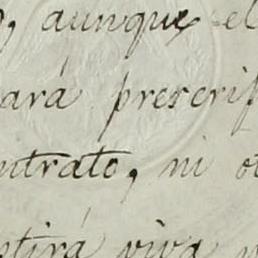 , aunque el
ará prescrip
ntrato, ni ot
ntirá viva